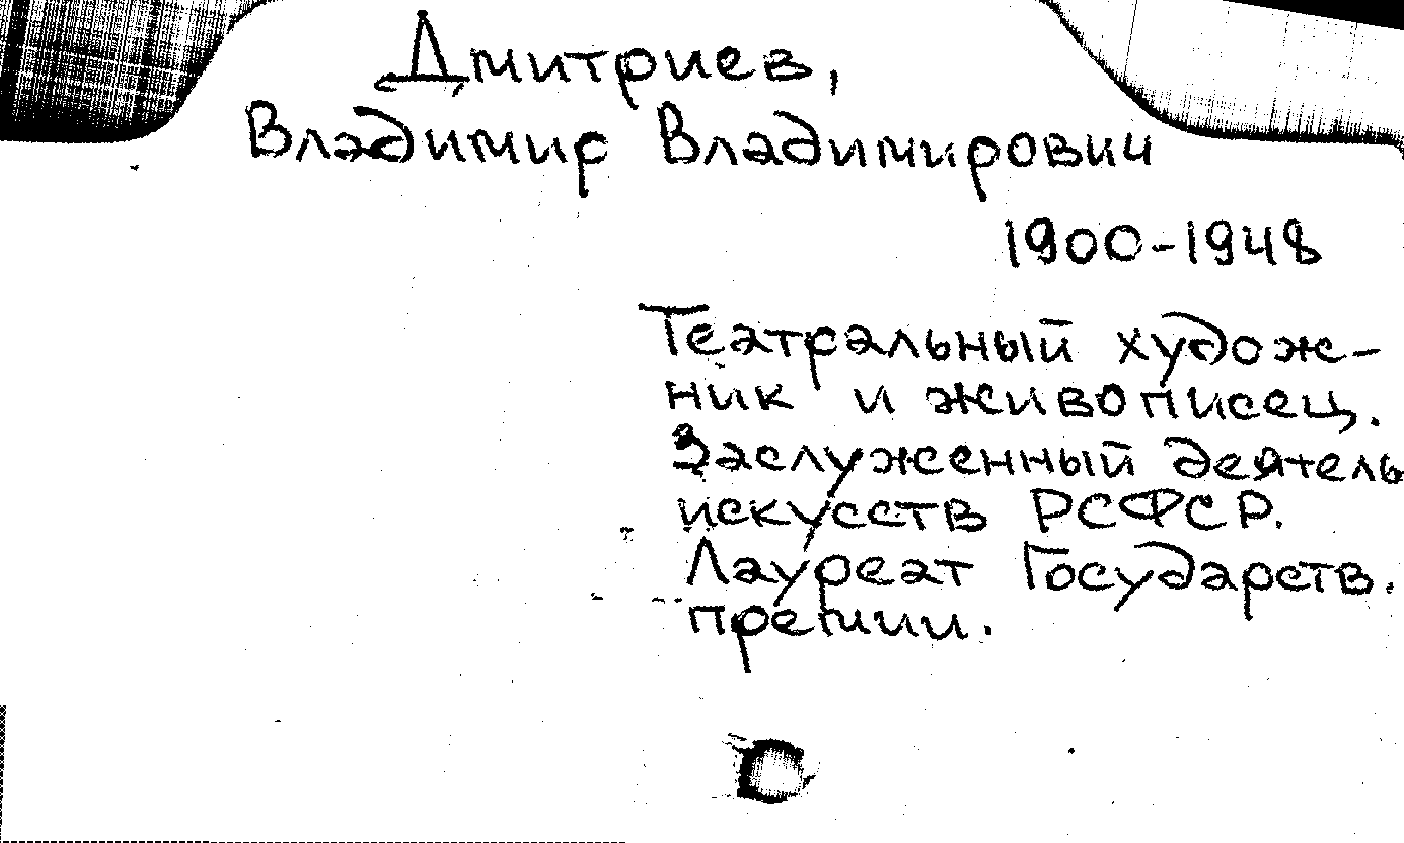 Дмитриев,
Владимир Владимирович
1900-1948
Театральный худож-
ник и живописец.
Заслуженный деятель
искусств РСФСР.
Лауреат Государств.
премии.